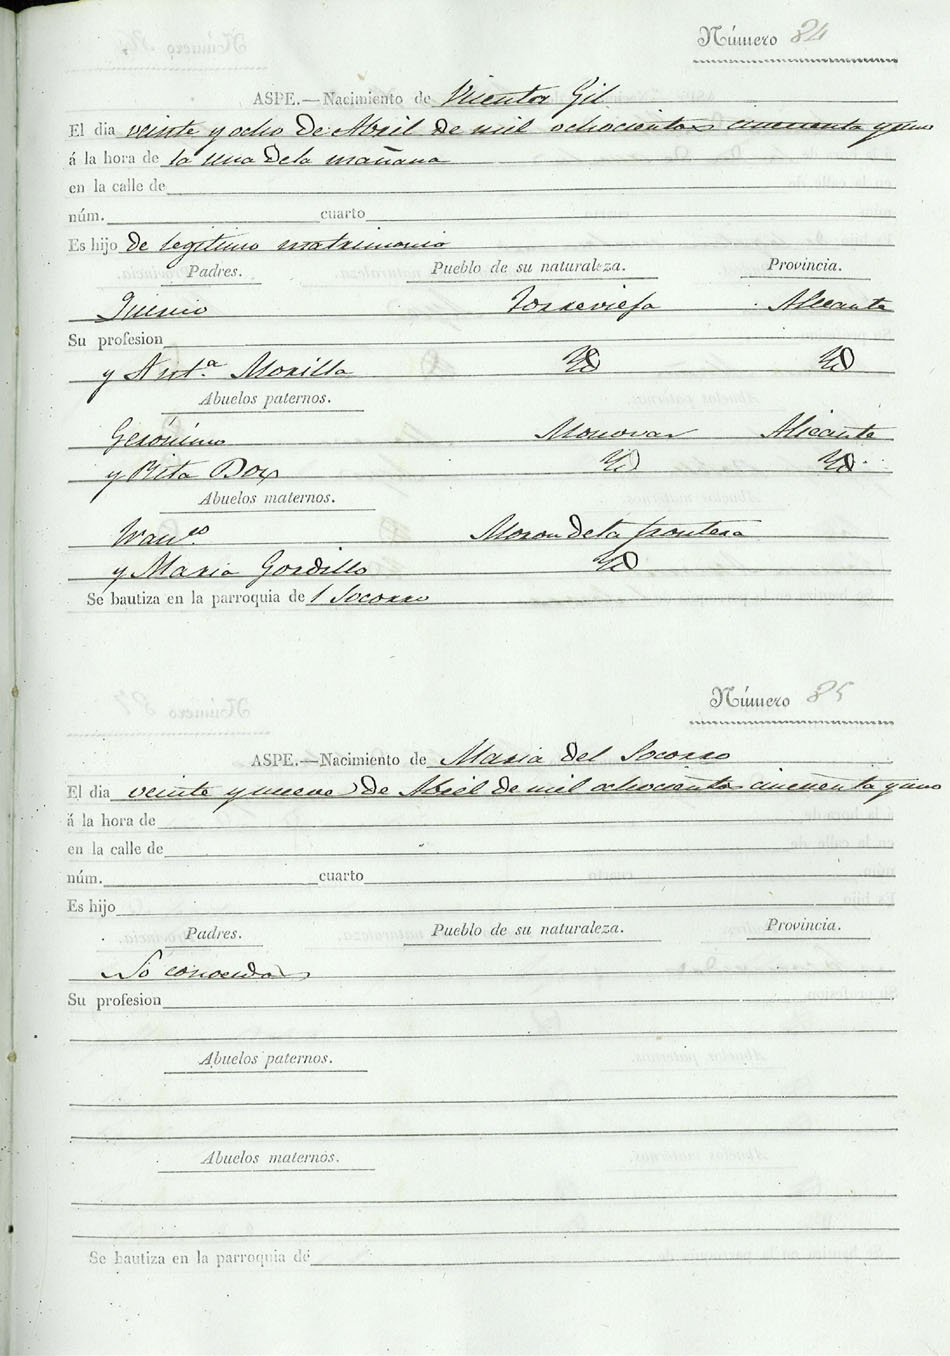 Número 84
ASPE.—Nacimiento de Vicenta Gil
El dia veinte y ocho de Abril de mil ochocientos cincuenta y uno
á la hora de la una dela mañana
en la calle de
núm. cuarto
Es hijo de legitimo matrimonio
Padres. Pueblo de su naturaleza. Provincia.
Torrevieja Alicante
Su profesion
y Ant.ª Morilla
Abuelos paternos.
Gerónimo Monovar Alicante
y Rita Box
Abuelos maternos.
Moron dela frontera
y Maria Gordillo
Se bautiza en la parroquia de l Socorro
Número 85
ASPE.—Nacimiento de Maria del Socorro
El dia veinte y nueve de Abril de mil ochocientos cincuenta y uno
á la hora de
en la calle de
núm. cuarto
Es hijo
Padres. Pueblo de su naturaleza. Provincia.
No conocidos
Su profesion
Abuelos paternos.
Abuelos maternos.
Se bautiza en la parroquia de